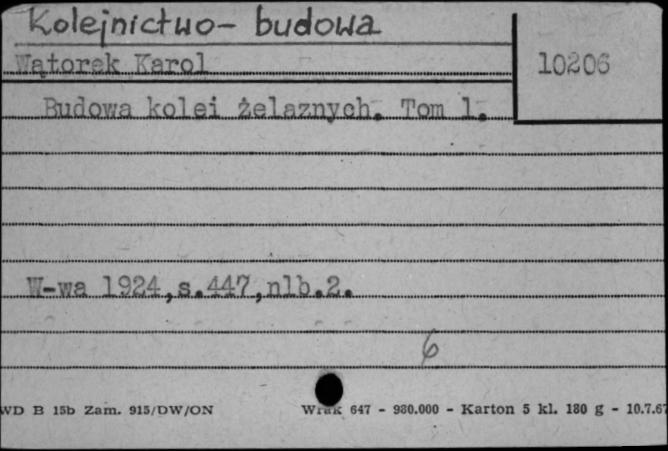 Kolejnictwo- budowa
Wątorek Karol
10206
Budowa kolei żelaznych. Tom 1.
W-wa 1924,s.447,nlb.2.
6
WD B 15b Zam. 915/DW/ON Wrak 647 - 980.000 - Karton 5 kl. 180 g - 10.7.67